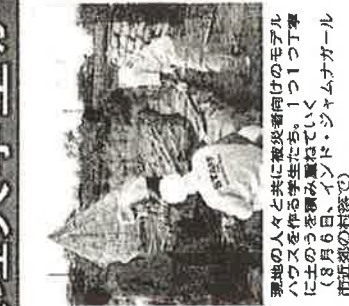 現地の人々と共に被災者向けのモデル
ハウスを作る学生たち。1つ1つ丁寧
に土のうを積み重ねていく
(8月6日、インド・ジャムナガール
市近郊の村落で)